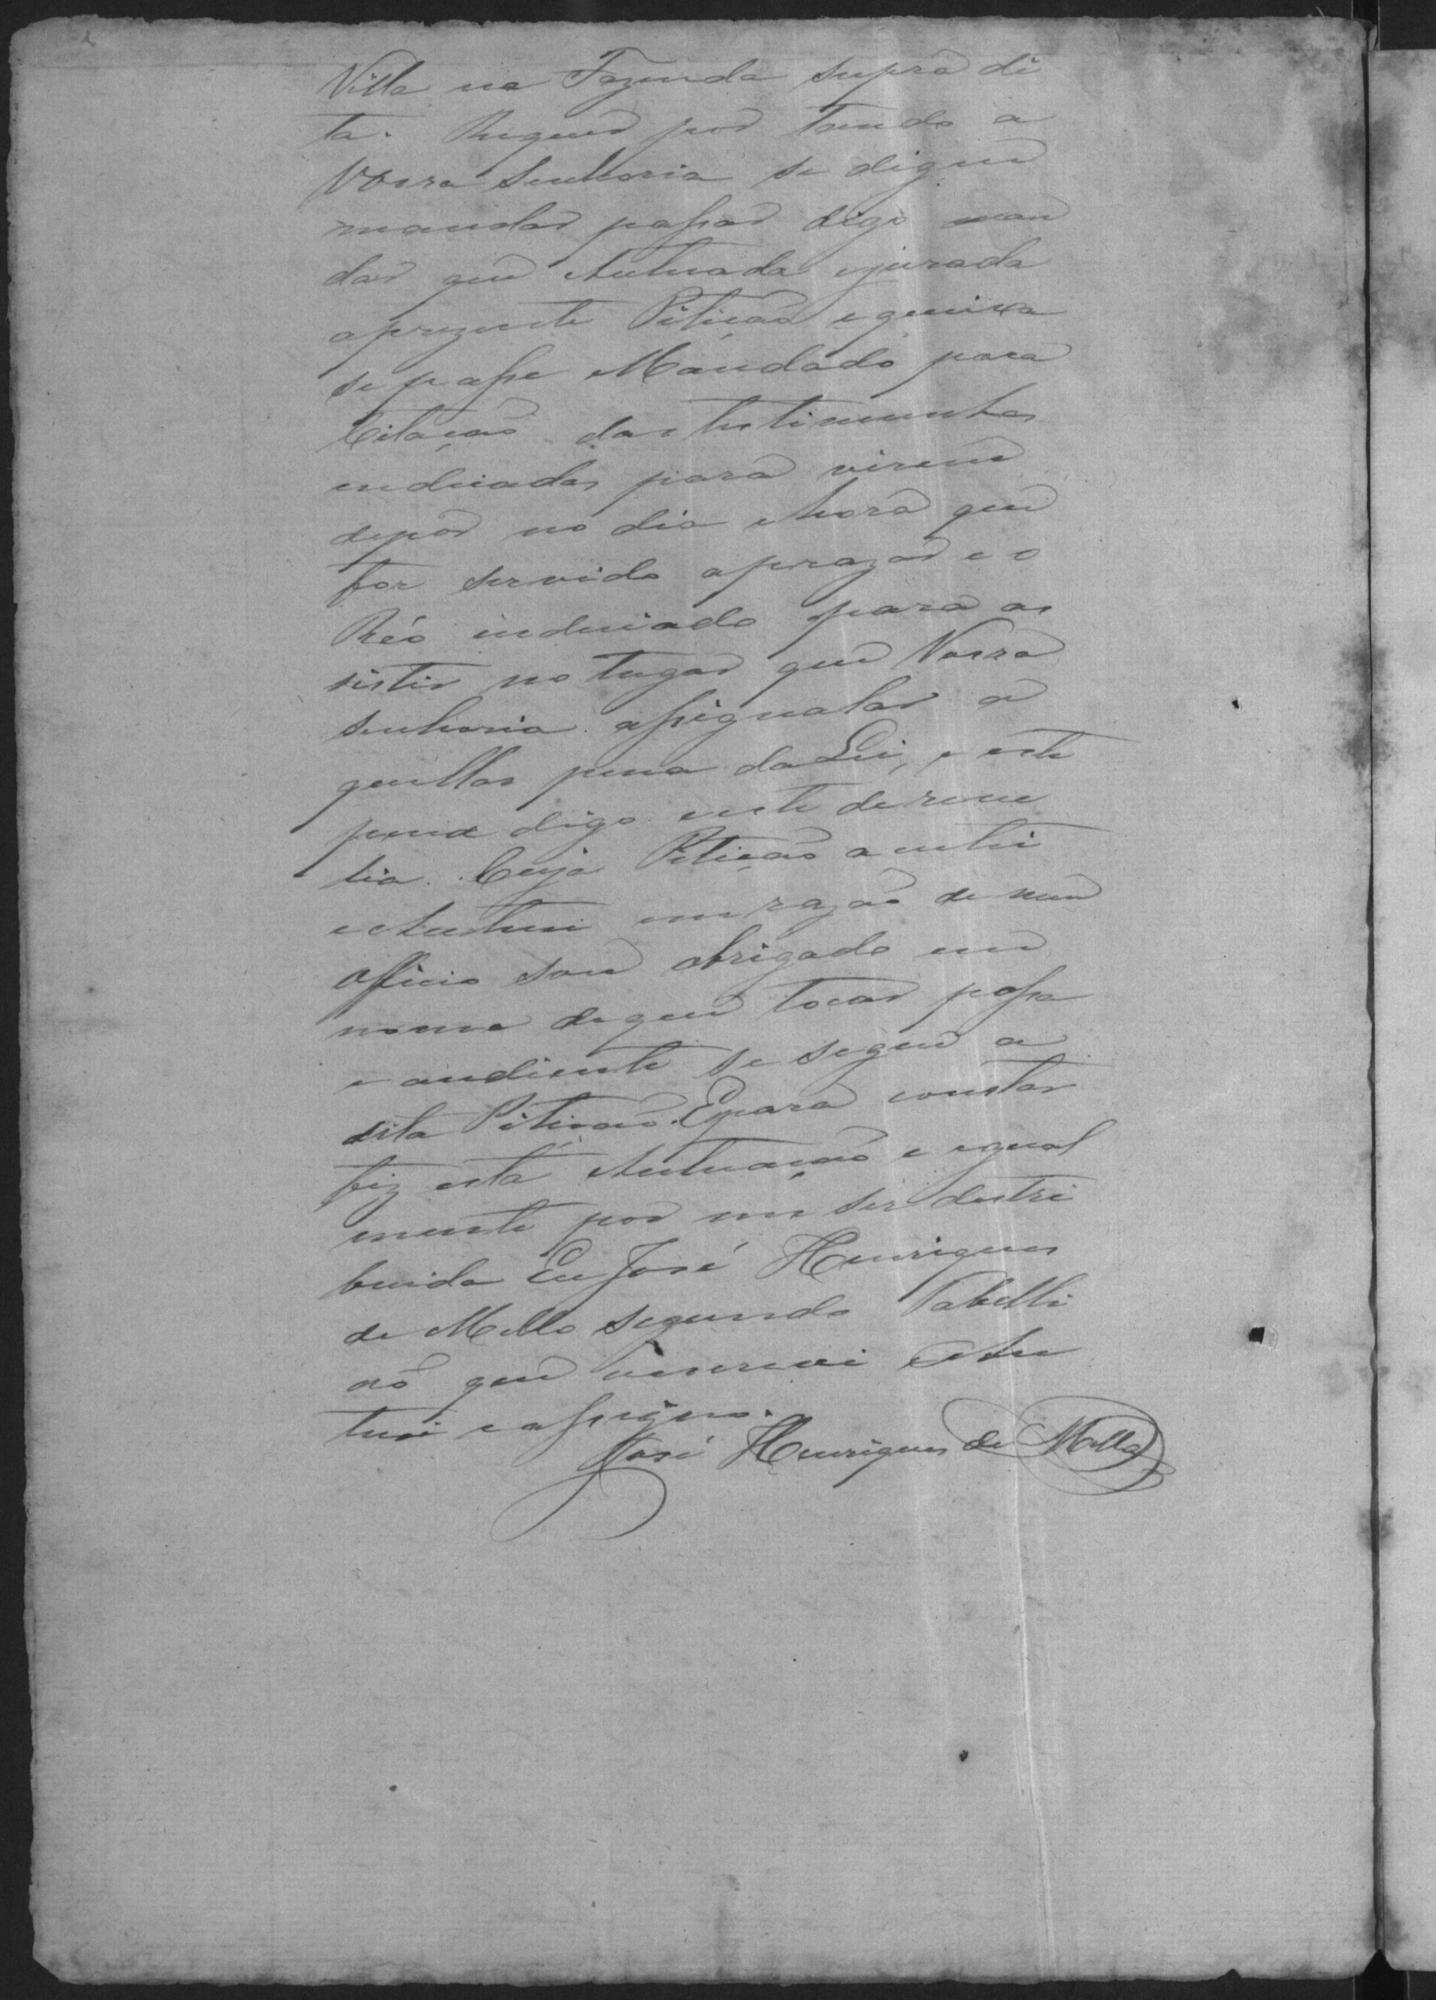 Villa na Fazenda supra di
ta. Requer por tando a
Vossa Senhoria se digne
mandar passar digo man
dar que Autuada ejurada
aprezente Pitição e queixa
se passe Mandado para
Citação das testimunhas
endiciadas para virem
depor no dia ehora que
for servido aprazar e o
Réo indiciado para as
sistir no lugar que Vossa
Senhoria assignalar a
quellas pena da Lei, e este
pena digo este de reve
lia. Cuja Pitição aceitei
e Autuei em razão de meu
Officio sou obrigado em
nome de quem tocar possa
e andiente se segue a
dita Pitição. Epara constar
fiz esta Autuação e egual
mente por me ser destri
buida Eu José Henriques
de Mello segundo Tabelli
ão que escrevi e Au
tuei e assigno.
José Henriques de Mello